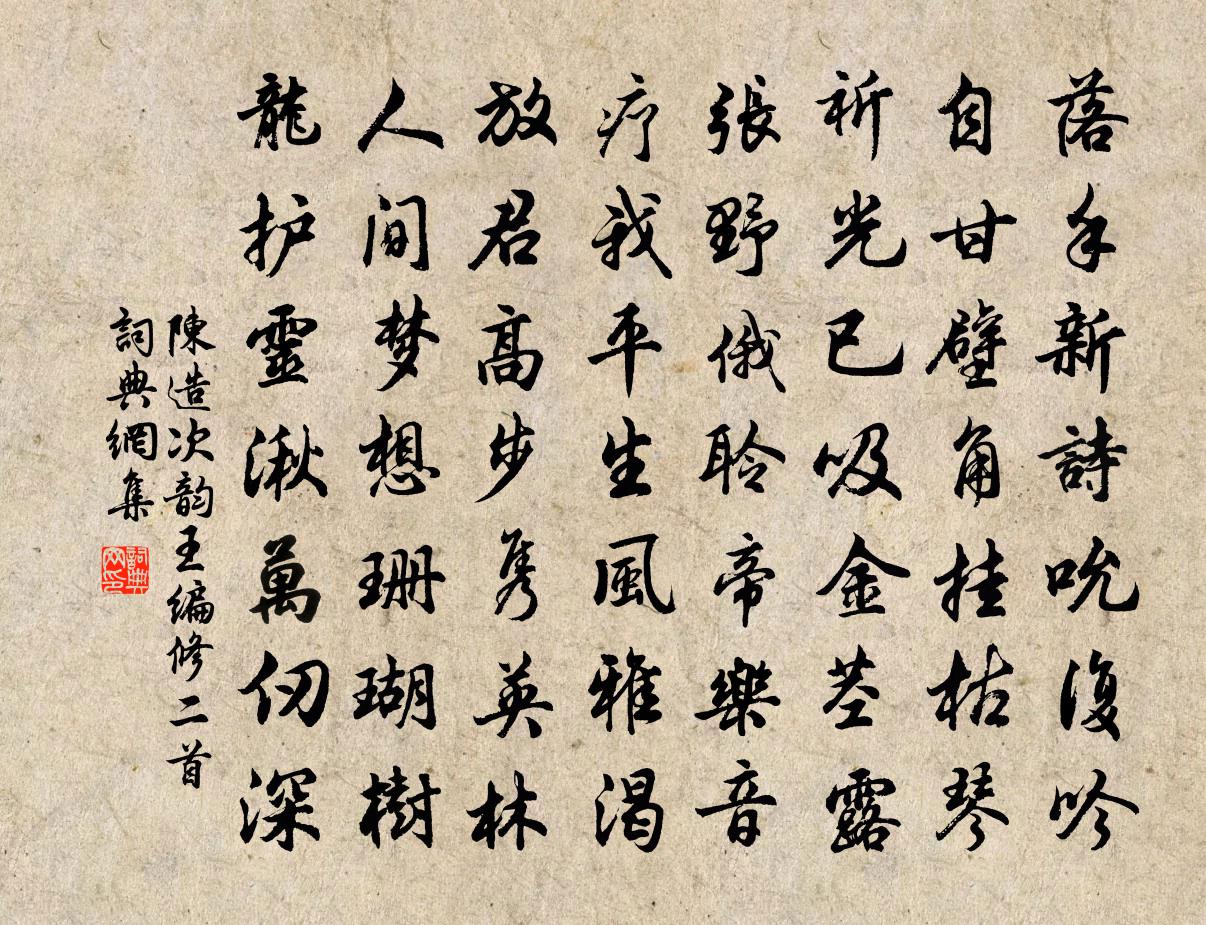 落手新詩吮復吟
自甘壁角挂枯琴
祈光已吸金茎露
張野俄聆帝樂音
疗我平生風雅渴
放君高步隽英林
人间梦想珊瑚樹
龍护靈湫萬仞深
陳造次韵王编修二首
詞典網集
詞典网印